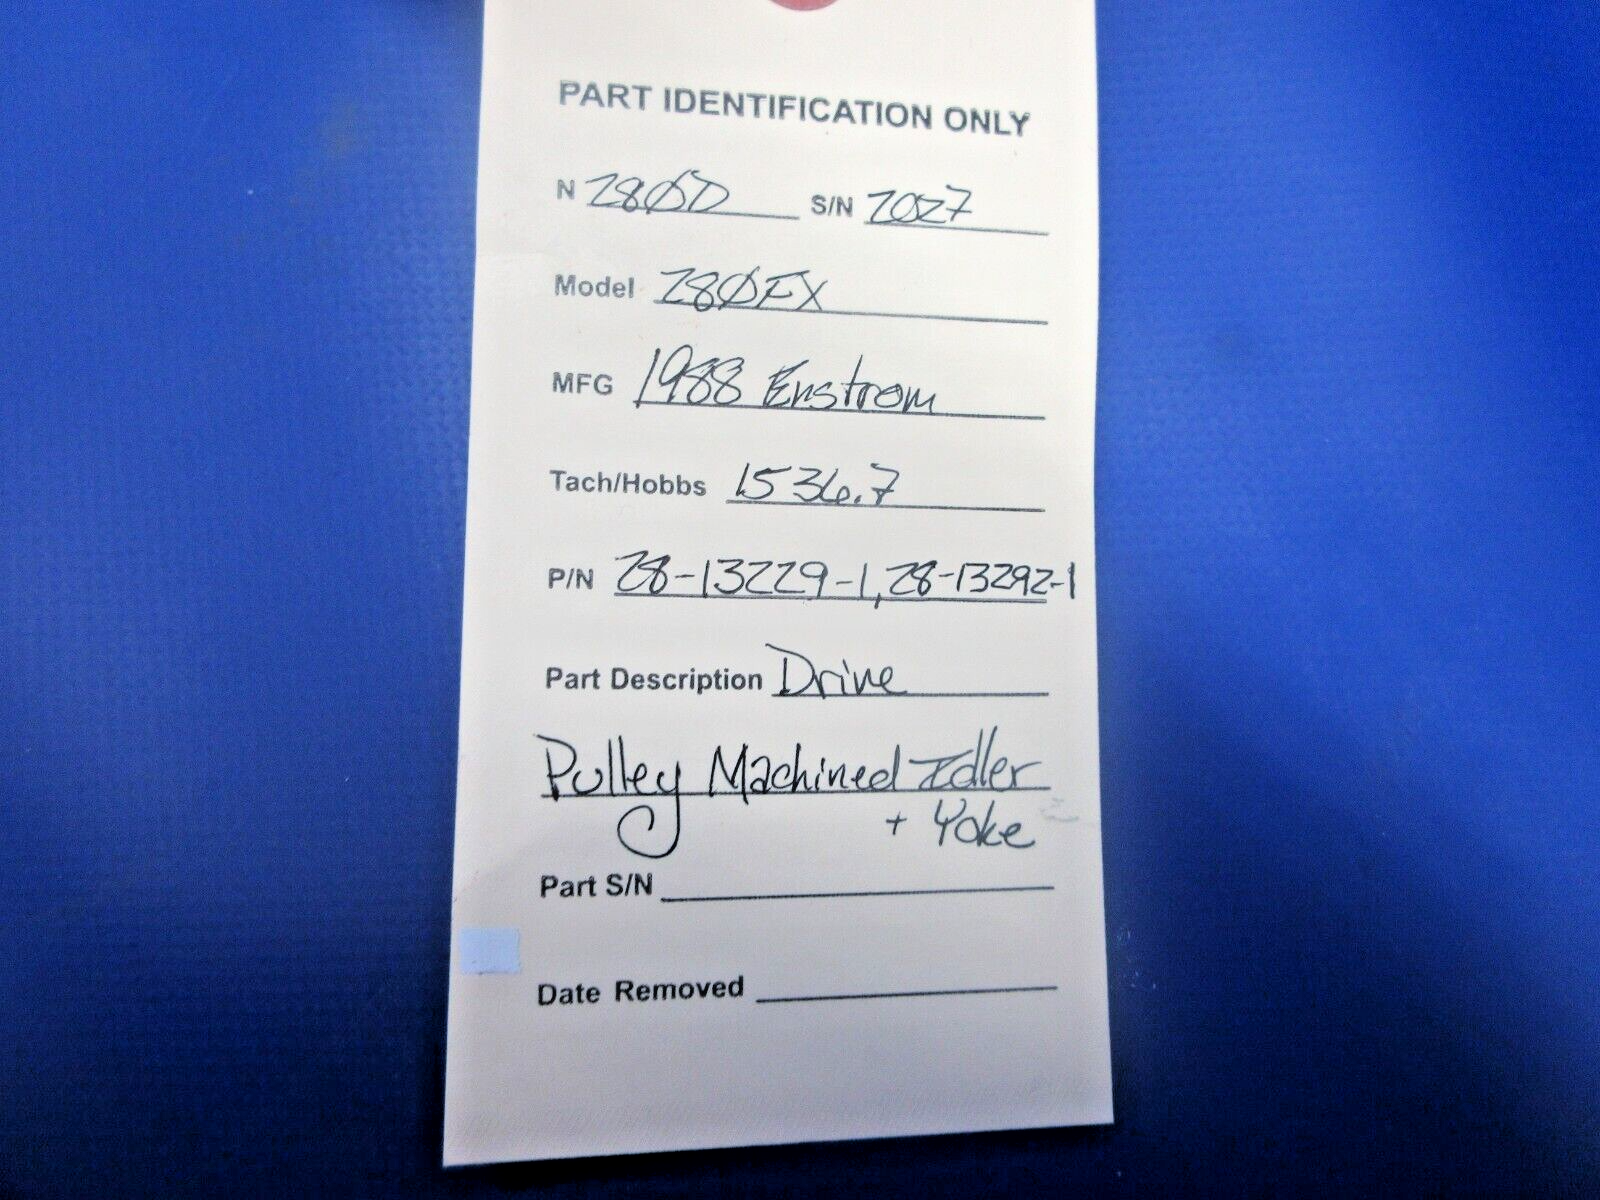 PART IDENTIFICATION ONLY
N 280D S/N 2027
Model 280FX
MFG 1988 Enstrom
Tach/Hobbs 1536.7
P/N 28-13229-1, 28-13292-1
Part Description Drive
Pulley Machined Idler
+ Yoke
Part S/N
Date Removed